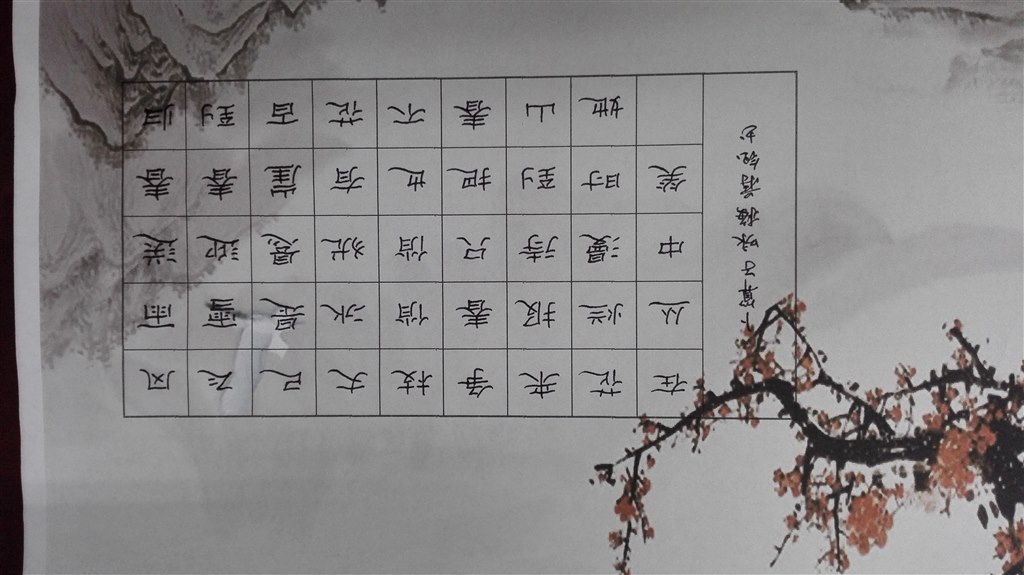 风雨送春归
飞雪迎春到
已是悬崖百
丈冰犹有花
枝俏俏也不
争春只把春
来报待到山
花烂漫时她
在丛中笑
卜算子咏梅 书